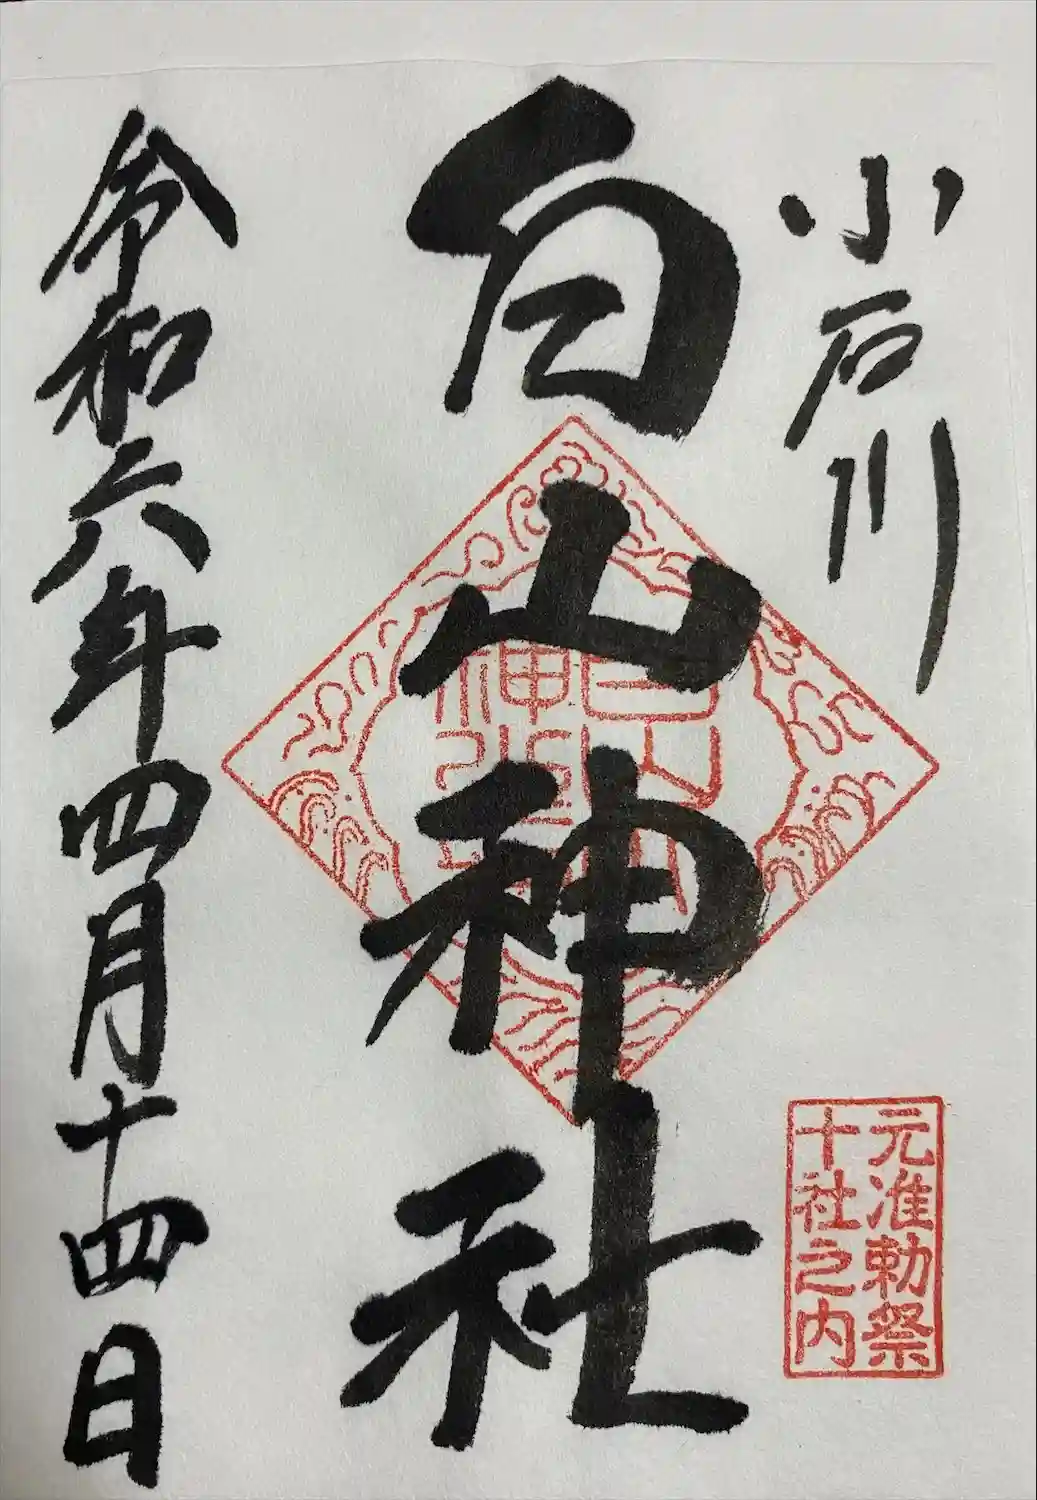 小石川
白山神社
令和六年四月十四日
元准勅祭
十社之内